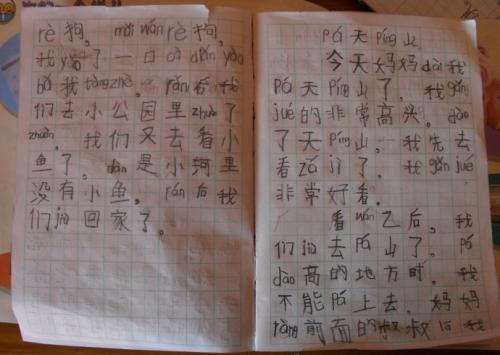 rè 狗。 mǎi wán rè 狗。
我 yǎo 了 一 口 cà diǎn yào
bǎ 我 tàng zhè。 rán 后 我
们 去 小 公 园 里 zhuàn 了
zhuàn。 我 们 又 去 看 小
鱼 了。 dàn 是 小 河 里
没 有 小 鱼。 rán 后 我
们 jiù 回 家 了。
Pá 天 Píng 山
今 天 妈 妈 dài 我
Pá 天 Píng 山 了。 我 gǎn
jué 的 非 常 高 兴。 dào
了 天 Píng 山。 我 先 去
看 zá jì 了。 我 gǎn jué
非 常 好 看。
看 wán 乙 后。 我
们 jiù 去 Pá 山 了。 Pá
dào 高 的 地 方 时。 我
不 能 Pá 上 去。 妈 妈
ràng 前 面 的 叔 叔 lā 我